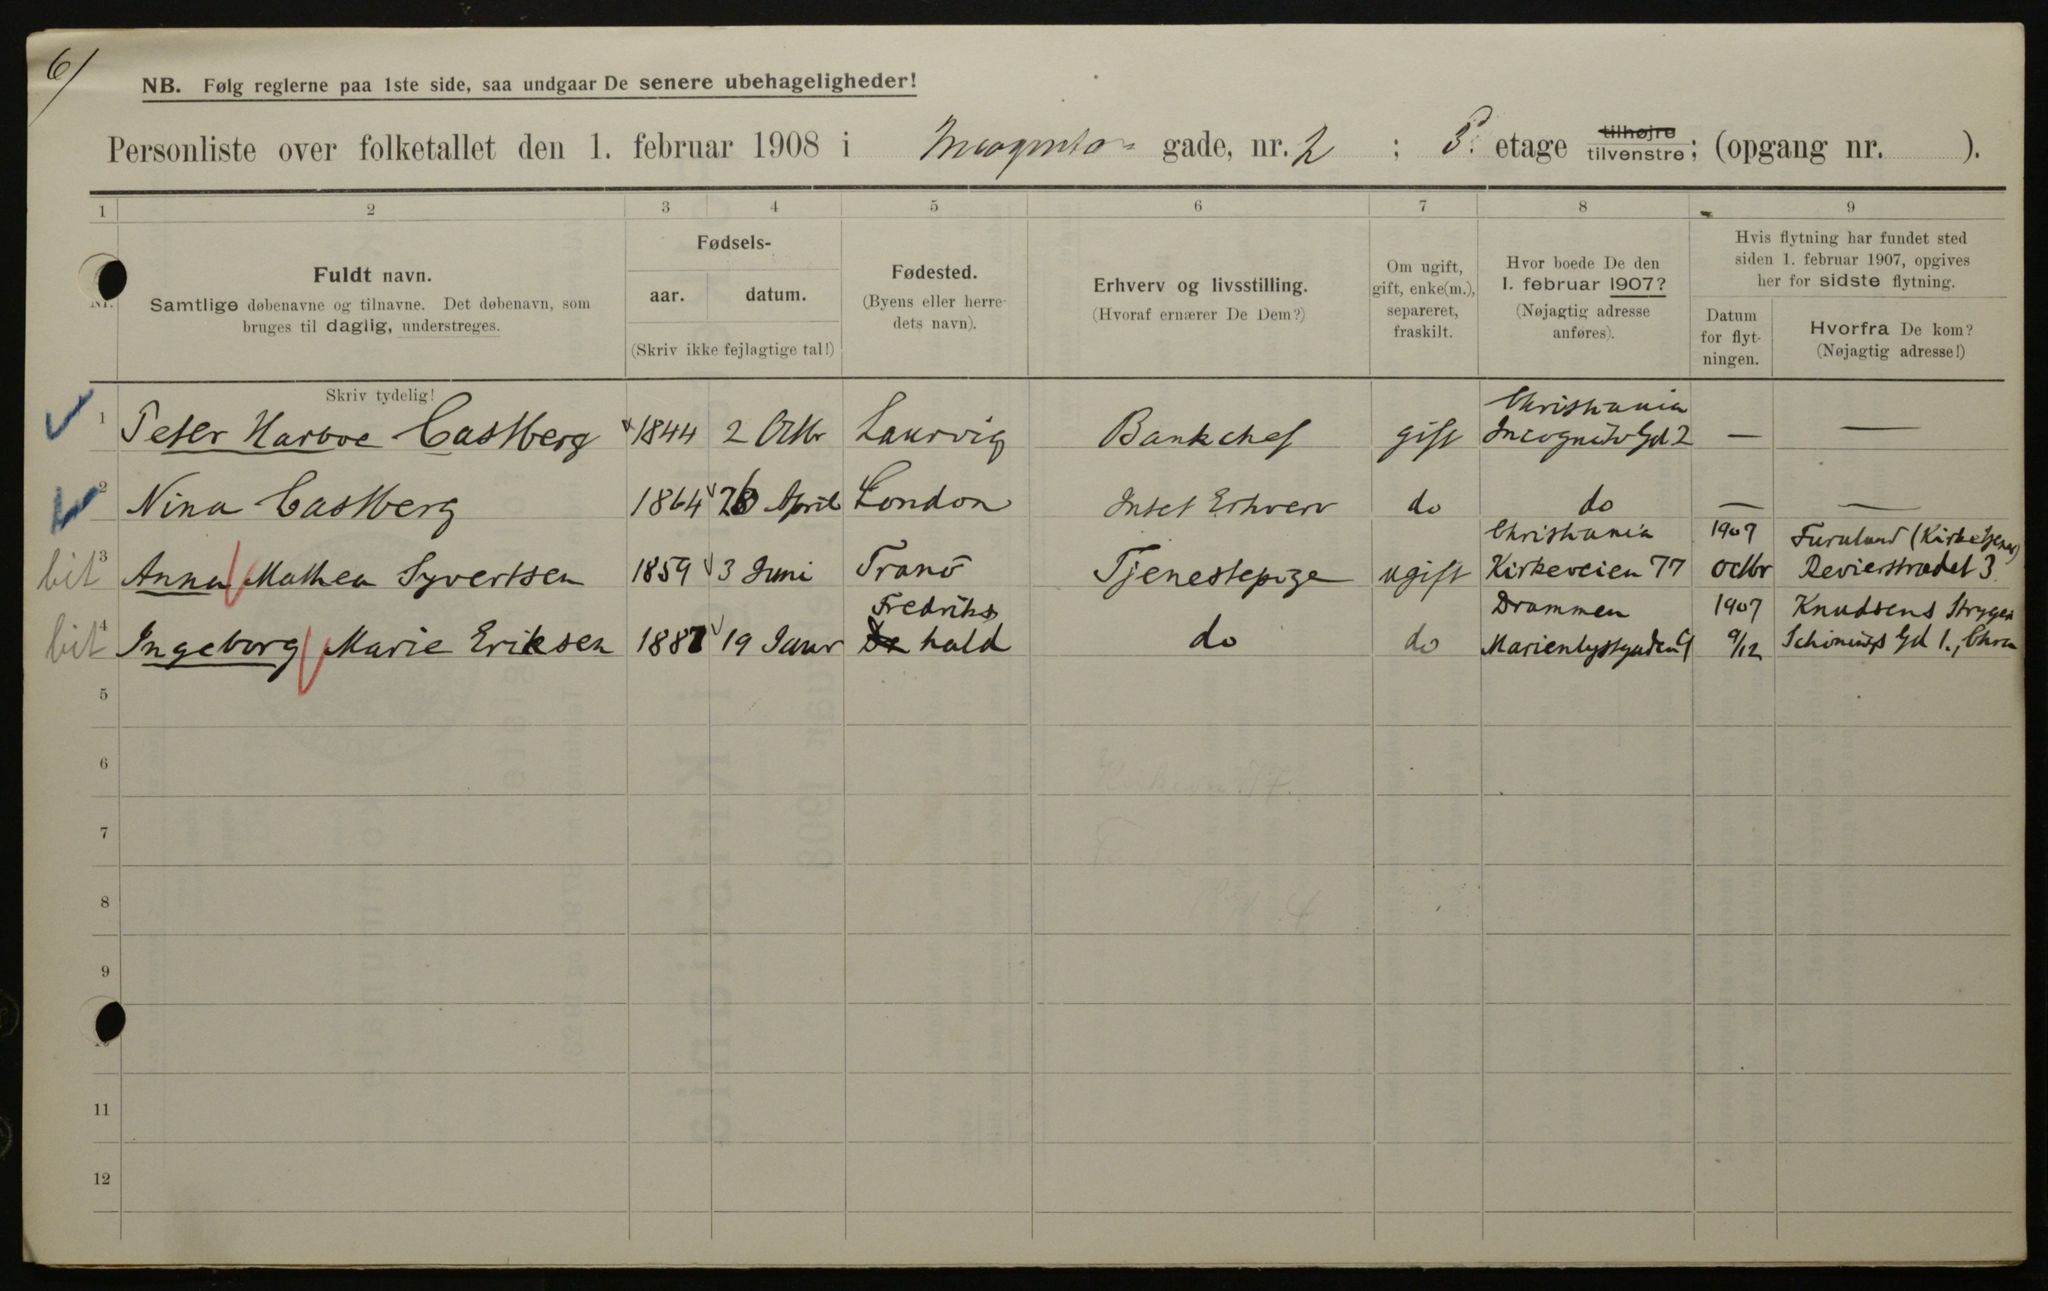 6/
NB. Følg reglerne paa 1ste side, saa undgaar De senere ubehageligheder!
Personliste over folketallet den 1. februar 1908 i Incognito- gade, nr. 2 ; etage tilhøjre tilvenstre; (opgang nr. ).
1 2 3 4 5 6 7 8 9
Nr.
Fuldt navn.
Samtlige døbenavne og tilnavne. Det døbenavn, som
bruges til daglig, understreges.
Skriv tydelig!
Fødsels-
aar. datum.
(Skriv ikke fejlagtige tal!)
Fødested.
(Byens eller herre-
dets navn).
Erhverv og livsstilling.
(Hvoraf ernærer De Dem?)
Om ugift,
gift, enke(m.),
separeret,
fraskilt.
Hvor boede De den
1. februar 1907?
(Nøjagtig adresse
anføres).
Hvis flytning har fundet sted
siden 1. februar 1907, opgives
her for sidste flytning.
Datum
for flyt-
ningen.
Hvorfra De kom?
(Nøjagtig adresse!)
Christiania
1 Peter Harboe Castberg 1844 2 Octbr Laurvig Bankchef gift Incognito Gd 2 — —
2 Nina Castberg 1864 April London Intet Erhverv do do — —
Christiania 1907
bit 3 Anna Mathea Syvertsen 1859 3 Juni Tranö Tjenestepige ugift Kirkeveien 77 Octbr Revierstrædet 3
Fredriks Drammen 1907 Knudsens
bit 4 Ingeborg Marie Eriksen 1887 19 Janr hald do do 9/12 Gd 1., Chra
5
6
7
8
9
10
11
12